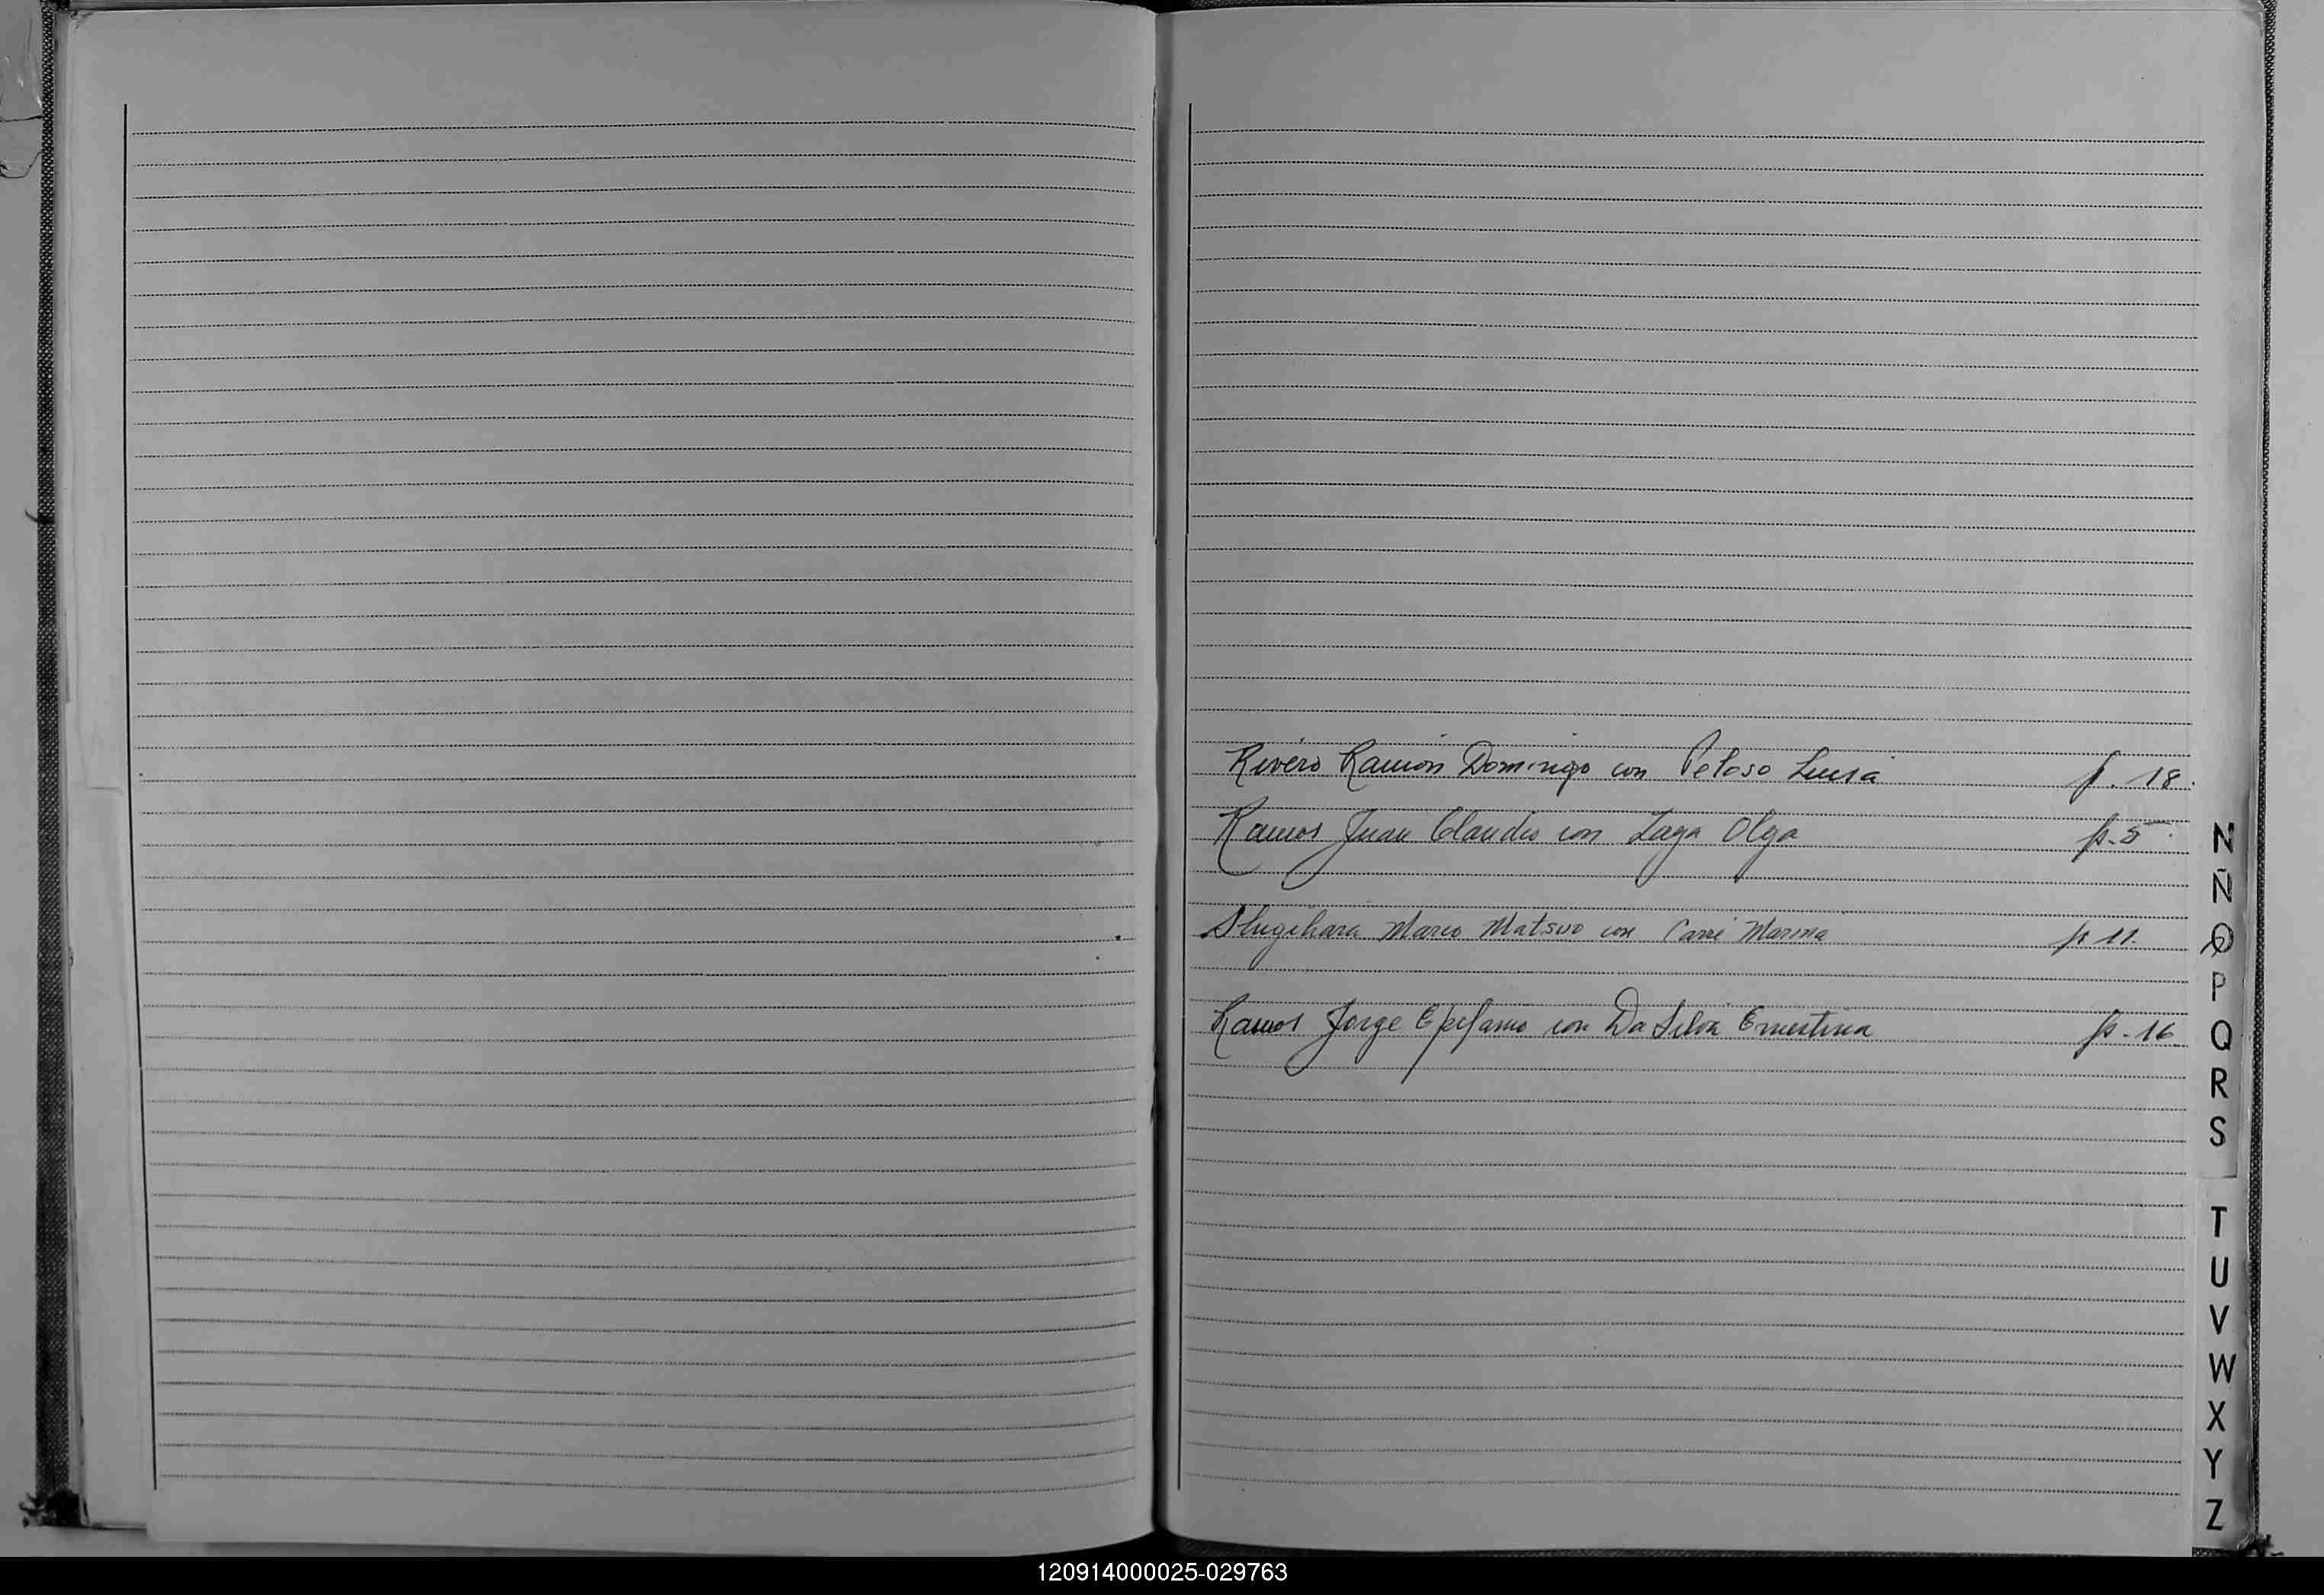 Rivero Ramón Domingo con Peloso Luisa p. 18.
Ramos Juan Claudio con Laga Olga p. 5
Shugihara Mario Matsuo con Marina p 11.
Ramos Jorge Epifanio con Da Silva Ernestina p. 16
N
Ñ
O
P
Q
R
S
T
U
V
W
X
Y
Z
120914000025-029763